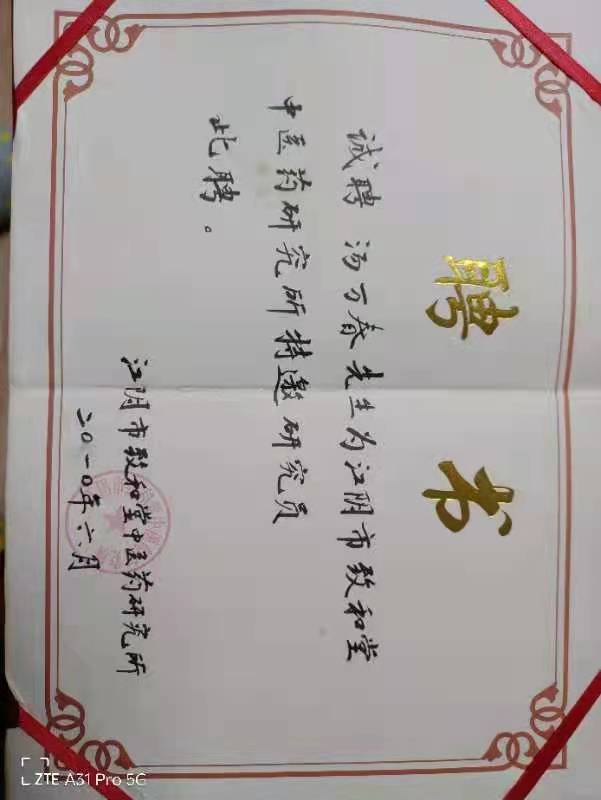 聘书
诚聘 汤万春先生为江阴市致和堂
中医药研究所特邀研究员
此聘。
江阴市致和堂中医药研究所
二〇一〇年六月
ZTE A31 Pro 5G